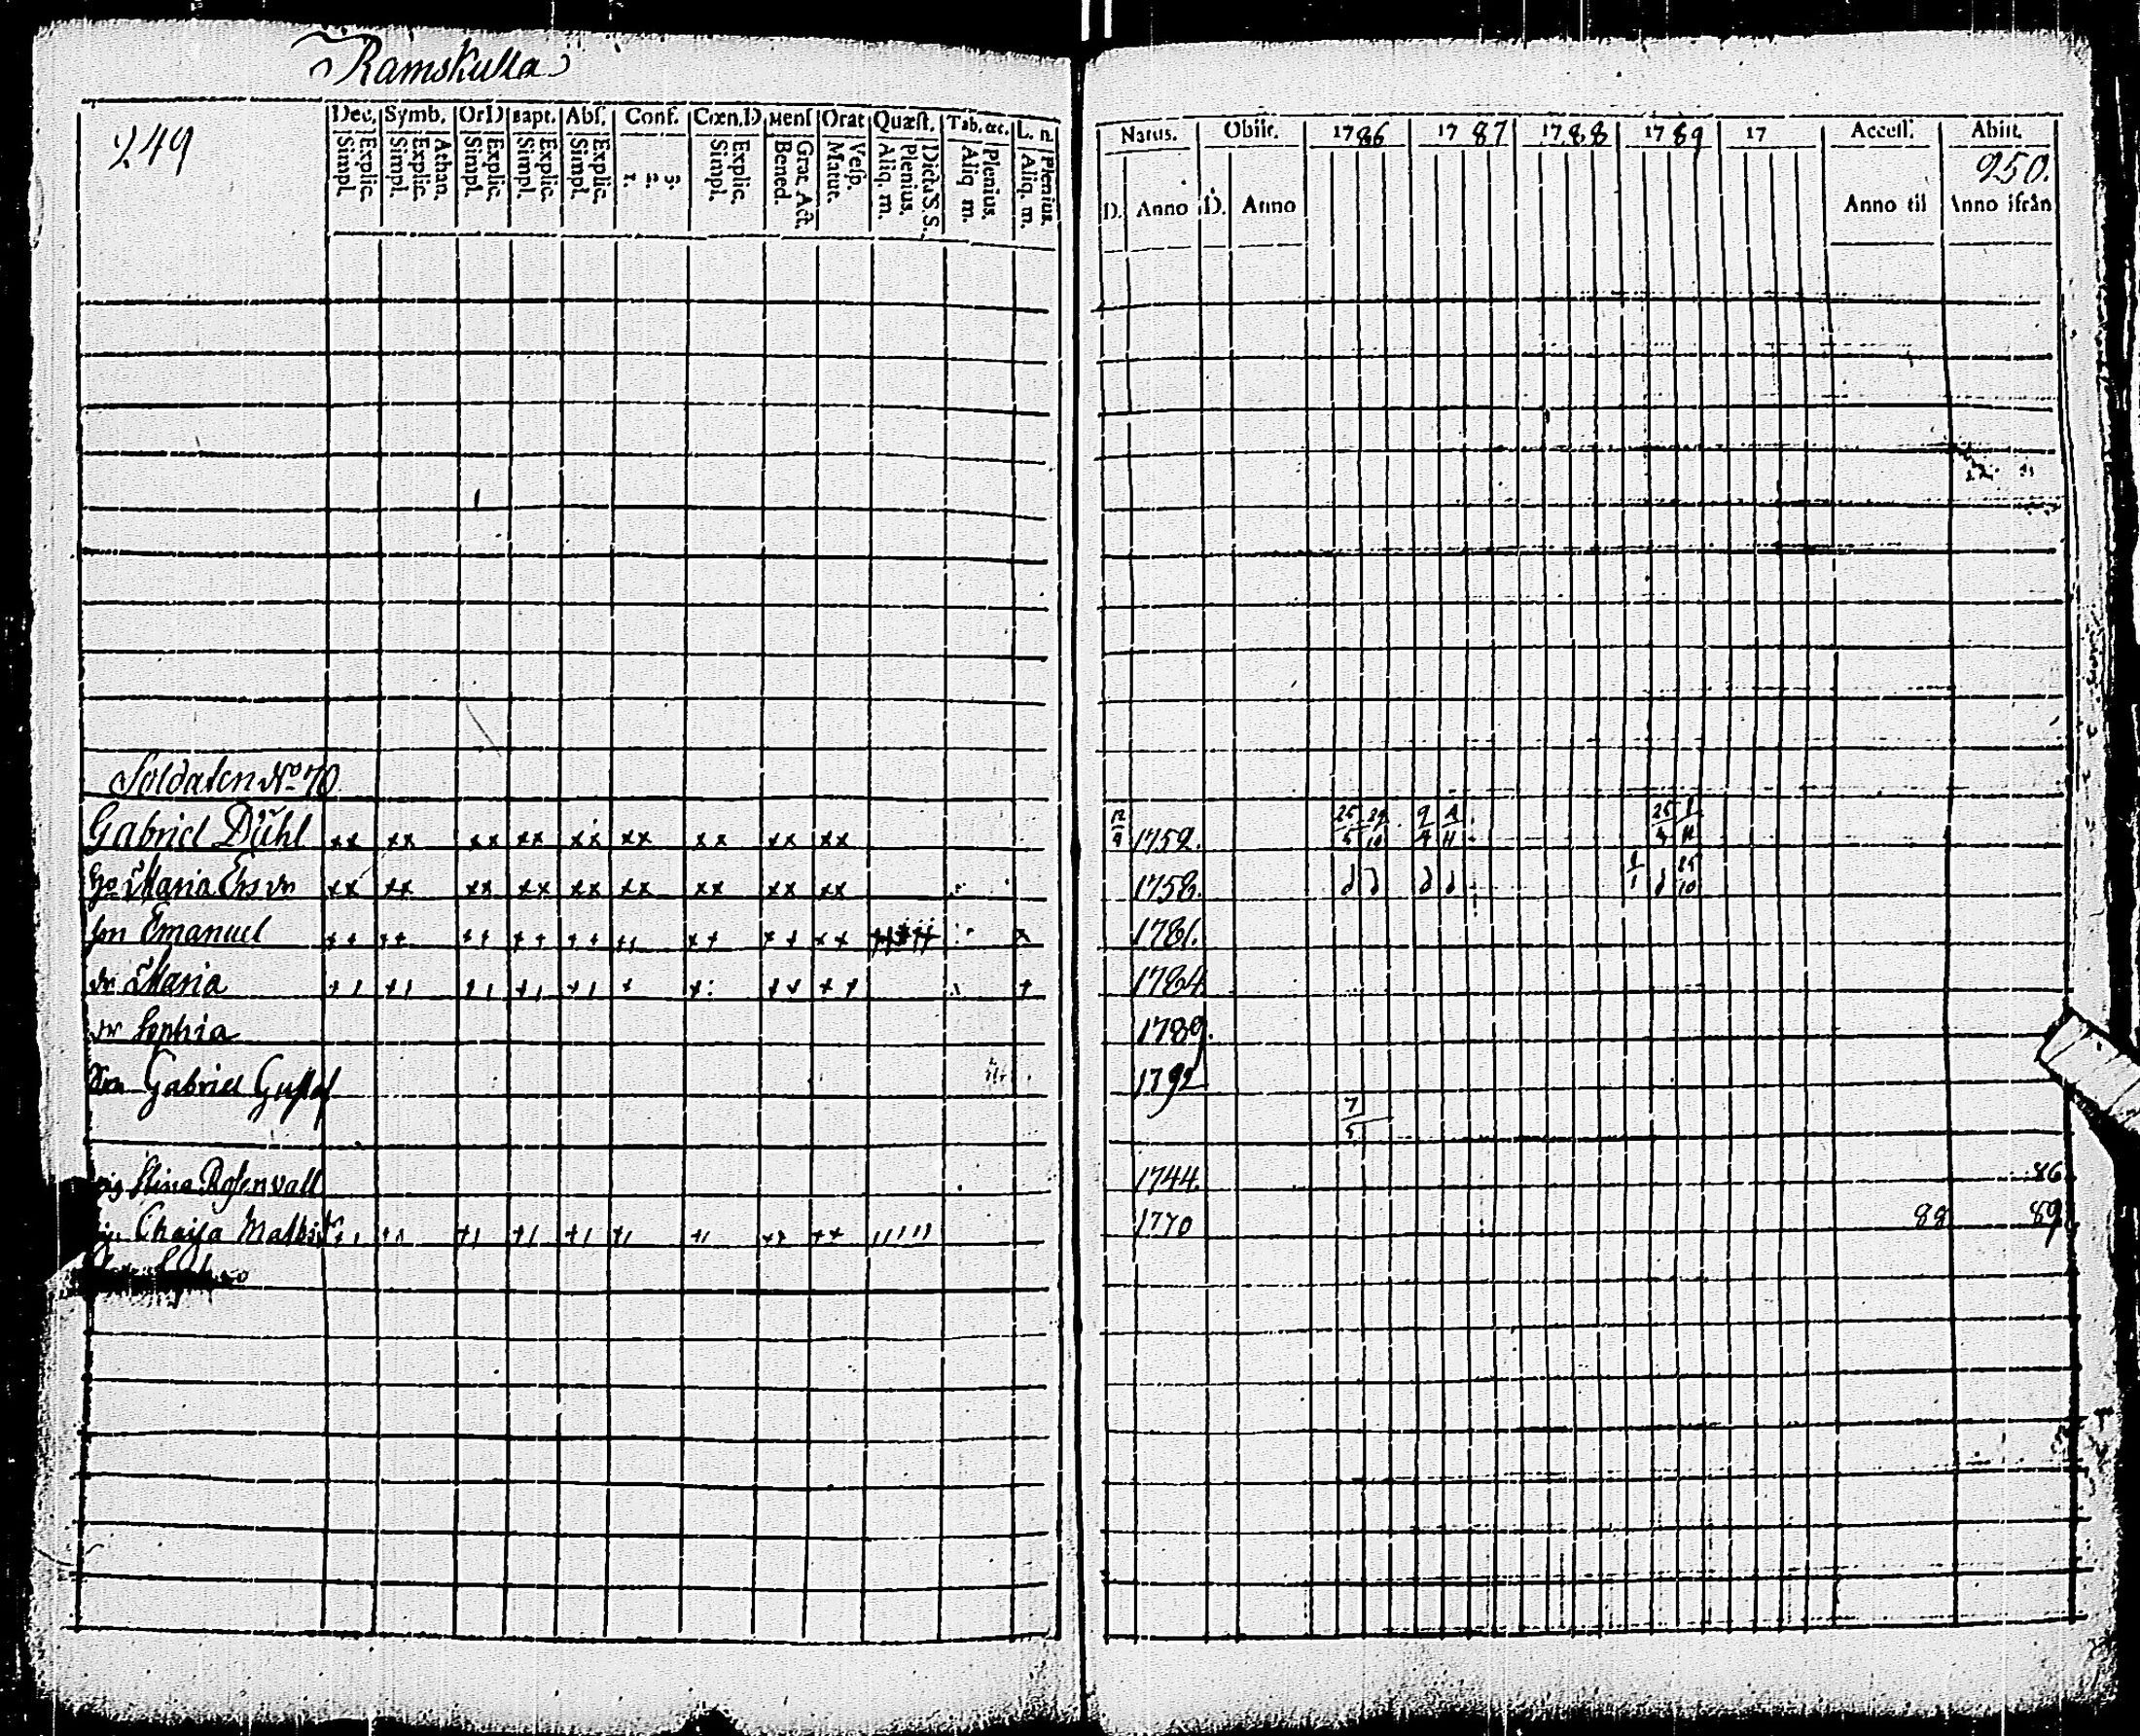 Ramskulla
249
Dec. Symb. OrD Bapt. Abſ. Conf. Cœn.D Menſ Orat Quæſt. Tab. œc. L. n.
Explic. Simpl. Athan. Explic. Simpl. Explic. Simpl. Explic. Simpl. Explic. Simpl. 1. 2. 3. Explic. Simpl. Grac. Act. Bened. Veſp. Matut. Dicta S.S. Plenius. Aliq. m. Plenius. Aliq m. Plenius. Aliq. m.
Natus. Obiit. 1786 1787 1788 1789 17 Acceſſ. Abiit.
250.
D. Anno D. Anno Anno til Anno ifrån
Soldaten No 70
Gabriel Dühl xx xx xx xx xx xx xx xx xx 12/9 1752. 25/5 29/10 9/4 4/11 25/4 1/11
Maria xx xx xx xx xx xx xx xx xx 1758. 1/1 25/10
son Emanuel 1781.
dr Maria 1784
dr Sophia 1789.
Son Gabriel Gustaf 1792
7/5
Stina Rosenvall 1744. 86
Chaisa 1770 88 89